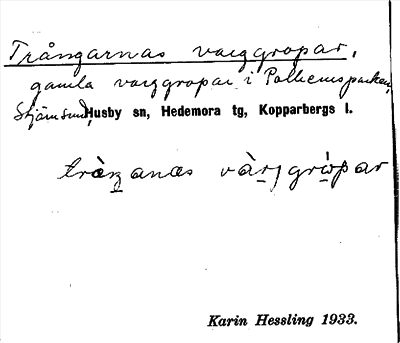 Trångarnas varggropar,
gamla varggropar i Polhemsparken,
Stjärnsund, Husby sn, Hedemora tg, Kopparbergs l.
tràŋanas vàrjgròpar
Karin Hessling 1933.